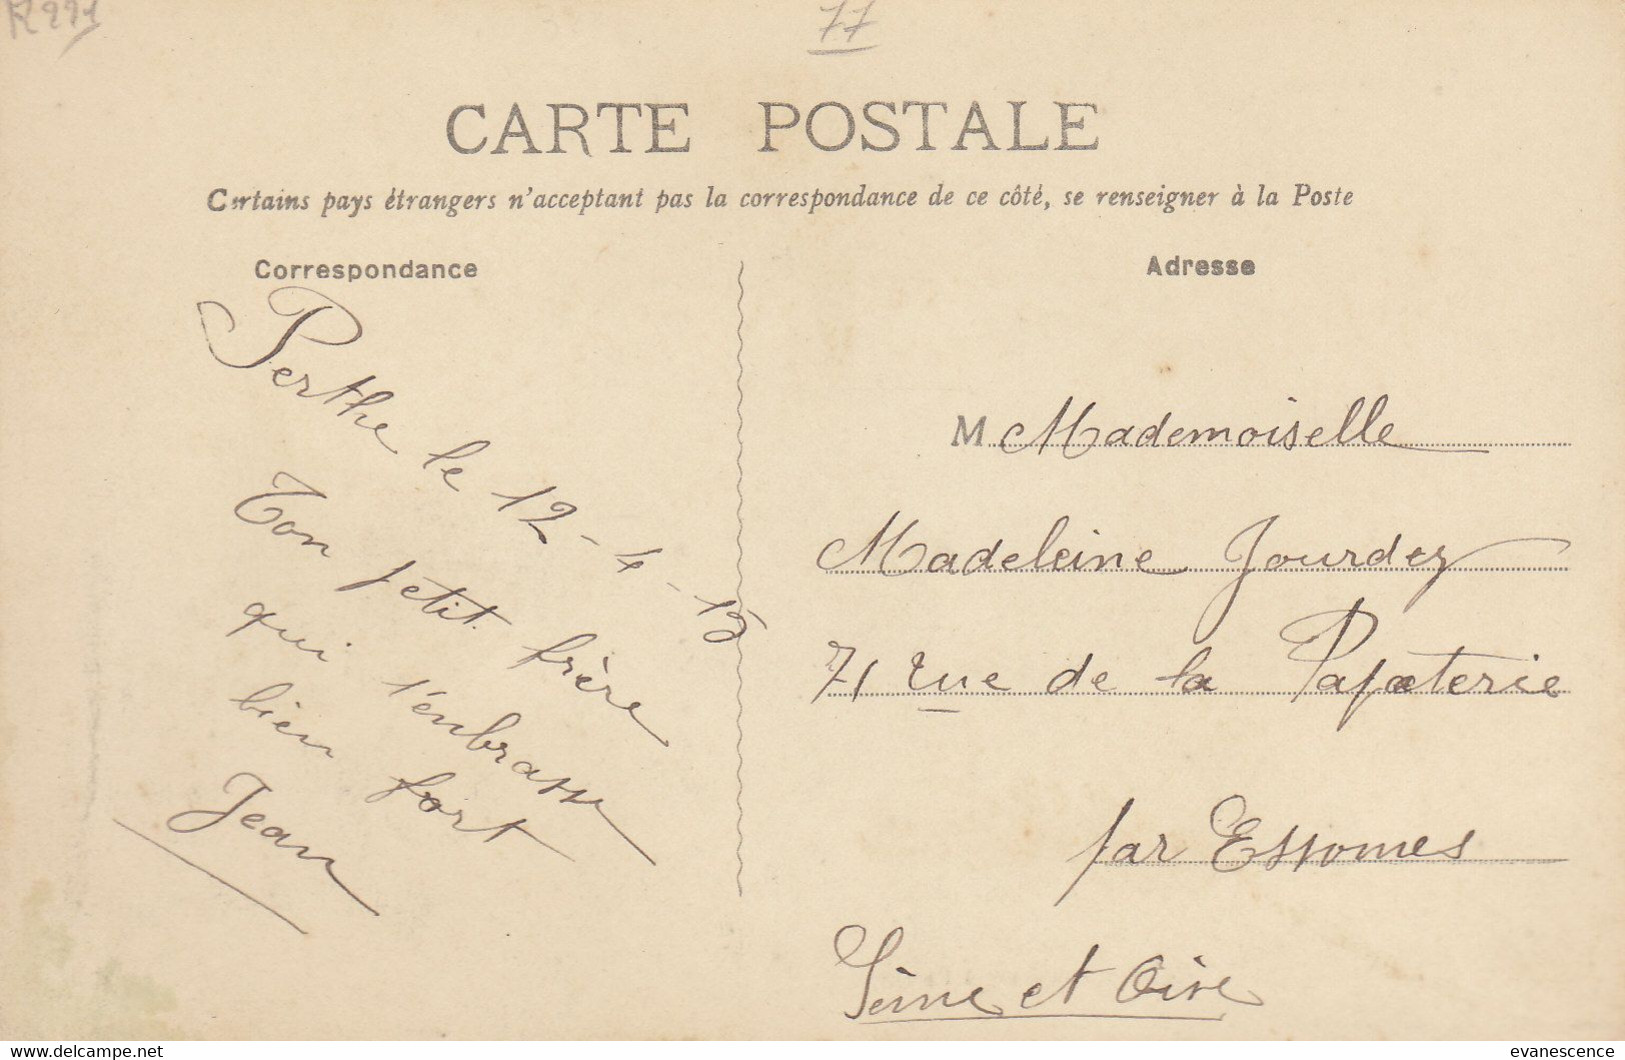 R291
77
CARTE POSTALE
Certains pays étrangers n'acceptant pas la correspondance de ce côté, se renseigner à la Poste
Correspondance
Perthe le 12-4-15
Ton petit frère
qui t'enbrasse
bien fort
Jean
Adresse
M Mademoiselle
Madeleine Jourdez
71 rue de la Papeterie
par Essonnes
Seine et Oise
www.delcampe.net
evanescence